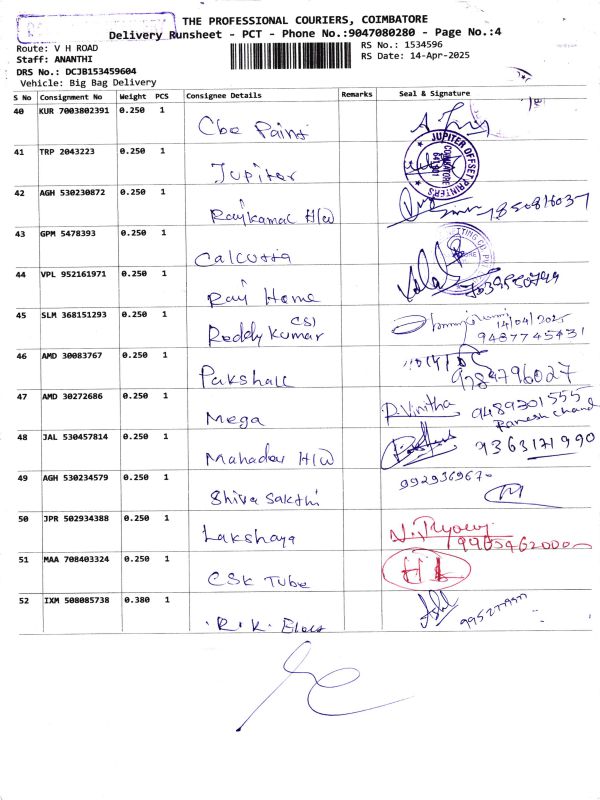 THE PROFESSIONAL COURIERS, COIMBATORE
Delivery Runsheet - PCT - Phone No.:9047080280 - Page No.:4
Route: V H ROAD
RS No.: 1534596
Staff: ANANTHI
RS Date: 14-Apr-2025
DRS No.: DCJB153459604
Vehicle: Big Bag Delivery
S No Consignment No Weight PCS Consignee Details Remarks Seal & Signature
40 KUR 7003802391 0.250 1
Cbe Paint
41 TRP 2043223 0.250 1
Jupiter
JUPITER OFFSET PRINTERS
COIMBATORE
641 001
42 AGH 530230872 0.250 1
Rajkamal H/W
43 GPM 5478393 0.250 1
Calcutta
44 VPL 952161971 0.250 1
Raj Home
45 SLM 368151293 0.250 1
CSI
Reddy Kumar
14/04/202
9487745431
46 AMD 30083767 0.250 1
Pakshal
9784796027
47 AMD 30272686 0.250 1
Mega
P.Vinitha 9489301555
Ramesh Chand
48 JAL 530457814 0.250 1
Mahadev H/W
9363171990
49 AGH 530234579 0.250 1
Shiva Sakthi
992936967
50 JPR 502934388 0.250 1
Lakshaya
51 MAA 708403324 0.250 1
CSK Tube
52 IXM 508085738 0.380 1
R.K. Elect